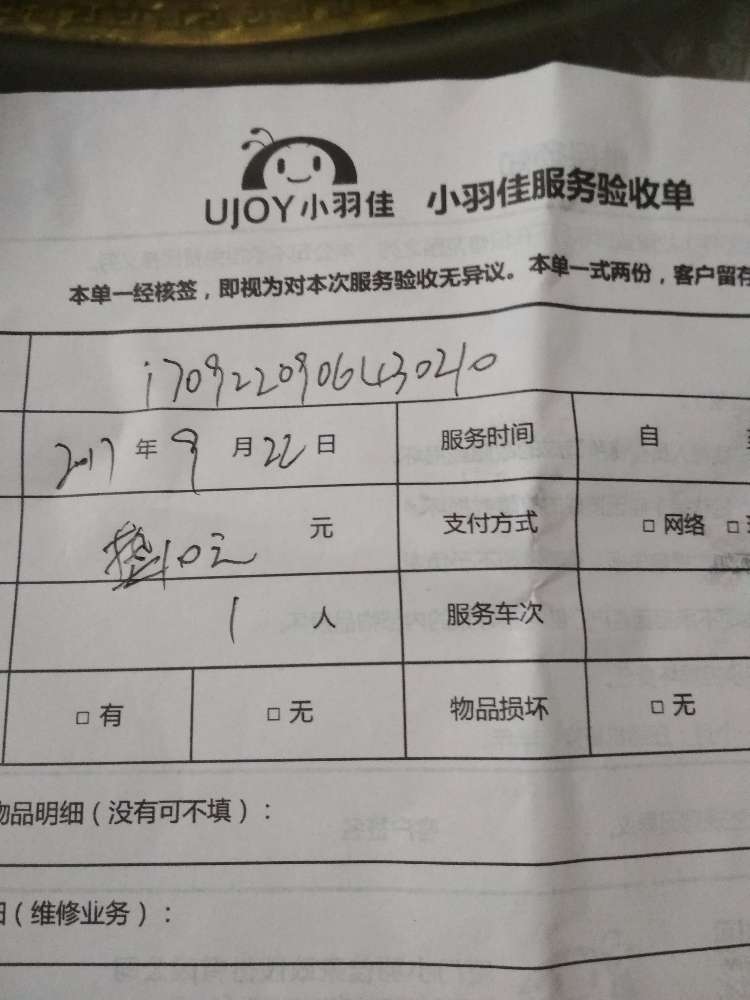 UJOY小羽佳 小羽佳服务验收单
本单一经核签，即视为对本次服务验收无异议。本单一式两份，客户留存
170922090643020
2017年9月22日 服务时间 自
10元 元 支付方式 □ 网络 □
1 人 服务车次
□ 有 □ 无 物品损坏 □ 无
物品明细（没有可不填）：
（维修业务）：